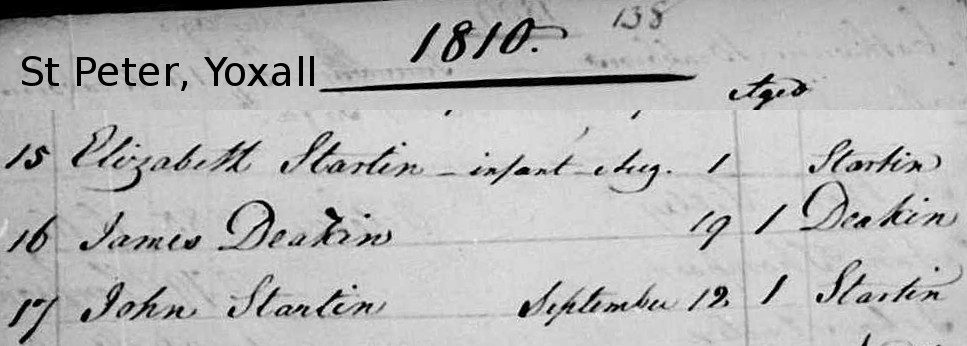 138
1810.
St Peter, Yoxall
Aged
15 Elizabeth Startin - infant - Aug. 1 Startin
16 James Deakin 19 1 Deakin
17 John Startin September 12 1 Startin